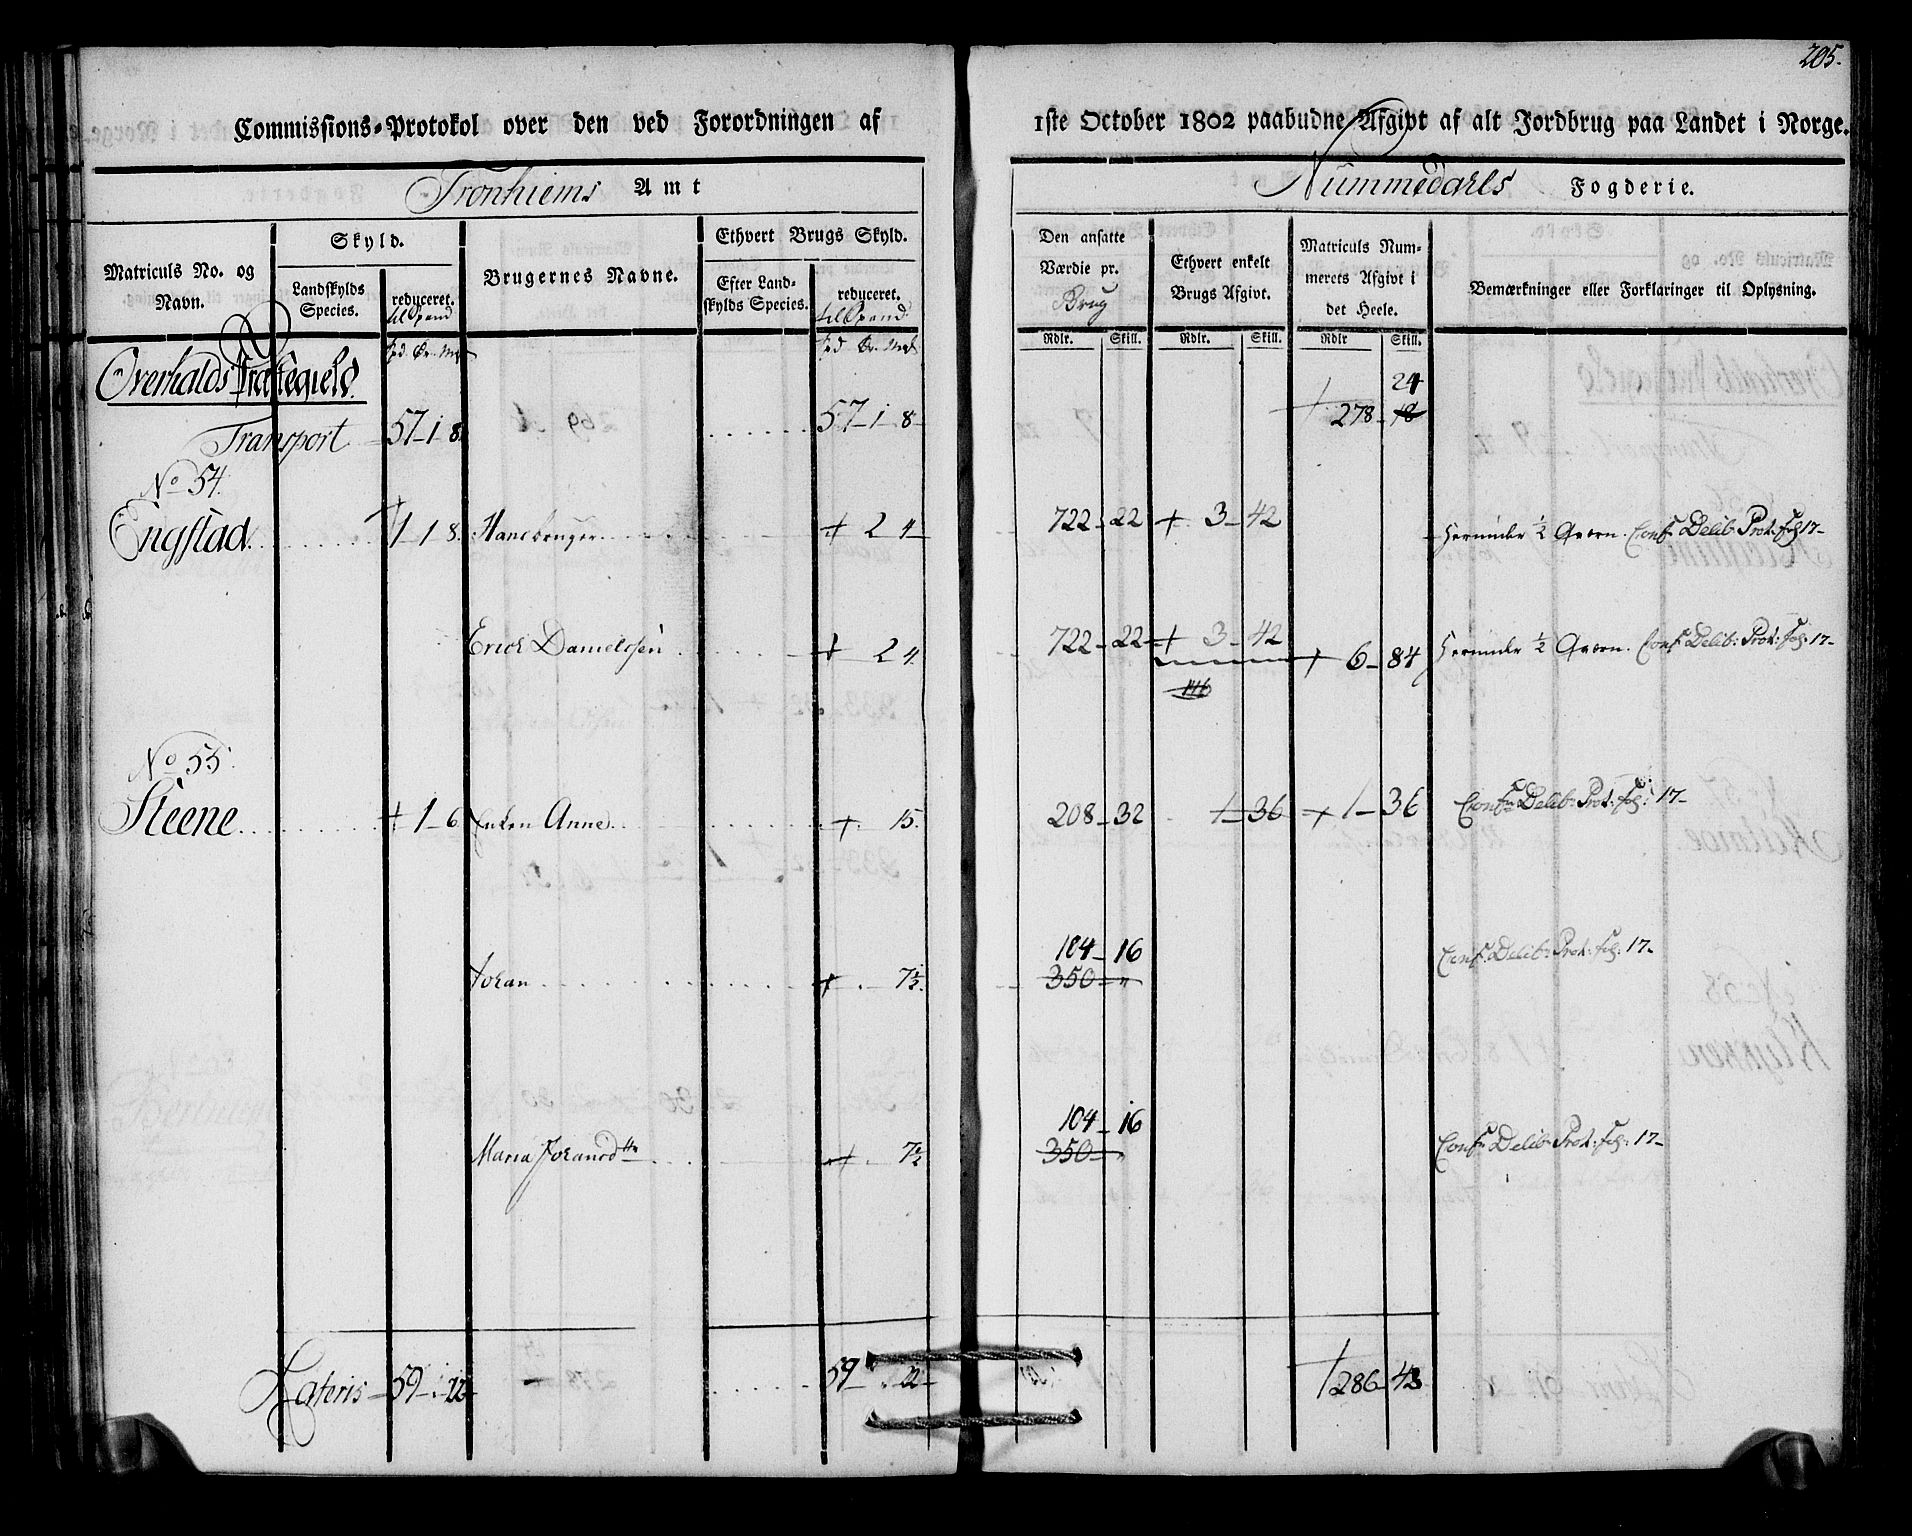 205.
Commissions-Protokol over den ved Forordningen af 1ste October 1802 paabudne Afgivt af alt Jordbrug paa Landet i Norge.
Tronhiems Amt Nummedahls Fogderie.
Matriculs No. og Navn.
Skyld.
Landskylds Species.
reduceret.
til Spand
Brugernes Navne.
Ethvert Brugs Skyld.
Efter Landskylds Species.
reduceret.
til Spand
Den ansatte Værdie pr.
Brug
Ethvert enkelt Brugs Afgivt.
Matriculs Nummerets Afgivt i det Heele.
Bemærkninger eller Forklaringer til Oplysning.
Rdlr. Skill. Rdlr. Skill. Rdlr Skill.
Overhalds Præstegield.
24
Transport 57-1-8. 57-1-8- 278-18
No 54.
Engstad. 1 1 8. 2 4- 722-22 3-42 Herunder ½ Qværn. Conf. Delib: Prot: Fol 17-
Erich Danielsen 2 4. 722-22 3-42 6-84 Herunder ½ Qværn. Conf. Delib: Prot: Fol: 17-
No 55.
Steene 1-6 Enken Anne 15. 208-32 1-36 1-36 Conf. Delib: Prot: Fol: 17-
104-16
Johan 7½. 350-" Conf. Delib: Prot: Fol: 17-
104-16
Maria Johansdtr 7½ 350-" Conf. Delib: Prot: Fol: 17-
Lateris 59-.-22- 59-.-22- 286-48